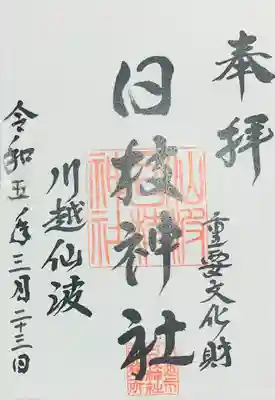 奉拝
重要文化財
日枝神社
川越仙波
令和五年三月二十三日